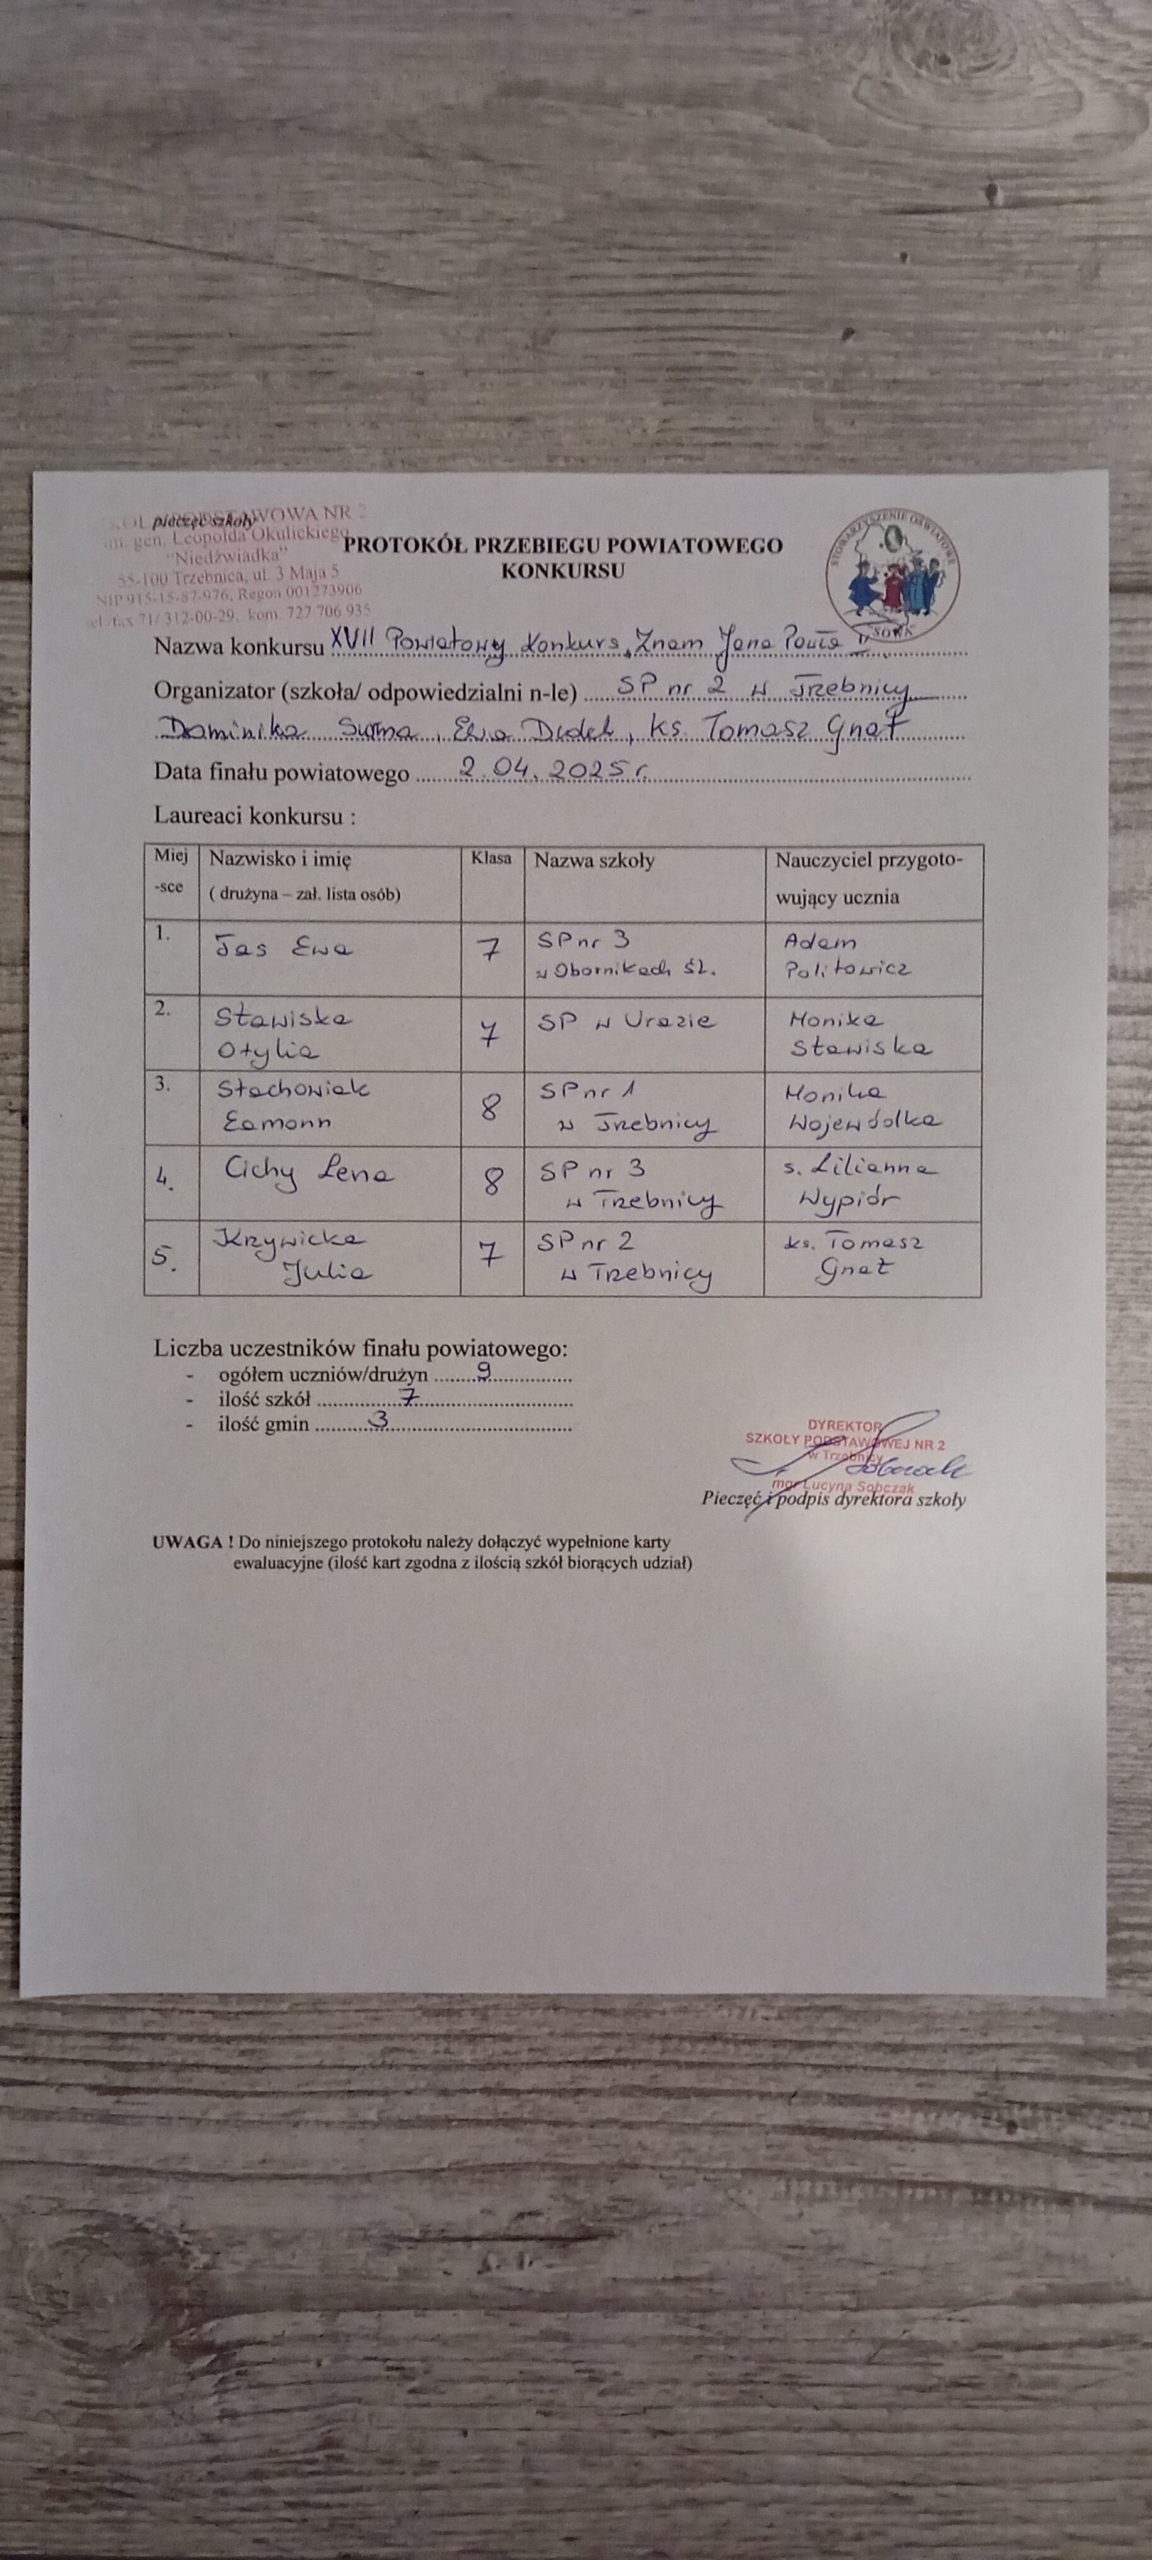 pieczęć szkoły
SZKOŁA PODSTAWOWA NR 2
im. gen. Leopolda Okulickiego
"Niedźwiadka"
55-100 Trzebnica, ul. 3 Maja 5
NIP 915-15-87-976, Regon 001273906
tel./fax 71/ 312-00-29, kom. 727 706 935
PROTOKÓŁ PRZEBIEGU POWIATOWEGO
KONKURSU
STOWARZYSZENIE OŚWIATOWE
SOWA
Nazwa konkursu XVII Powiatowy Konkurs „Znam Jana Pawła II"
Organizator (szkoła/ odpowiedzialni n-le) SP nr 2 w Trzebnicy
Dominika Surma, Ewa Dudek, ks. Tomasz Gnat
Data finału powiatowego 2.04.2025 r.
Laureaci konkursu :
Miej-sce Nazwisko i imię ( drużyna – zał. lista osób) Klasa Nazwa szkoły Nauczyciel przygoto-wujący ucznia
1. Jas Ewa 7 SP nr 3 w Obornikach Śl. Adam Politowicz
2. Stawiska Otylia 7 SP w Urazie Monika Stawiska
3. Stachowiak Eamonn 8 SP nr 1 w Trzebnicy Monika Wojewódka
4. Cichy Lena 8 SP nr 3 w Trzebnicy s. Lilianna Wypiór
5. Krzywicka Julia 7 SP nr 2 w Trzebnicy ks. Tomasz Gnat
Liczba uczestników finału powiatowego:
- ogółem uczniów/drużyn 9
- ilość szkół 7
- ilość gmin 3
DYREKTOR
SZKOŁY PODSTAWOWEJ NR 2
w Trzebnicy
mgr Lucyna Sobczak
Pieczęć i podpis dyrektora szkoły
UWAGA ! Do niniejszego protokołu należy dołączyć wypełnione karty
ewaluacyjne (ilość kart zgodna z ilością szkół biorących udział)